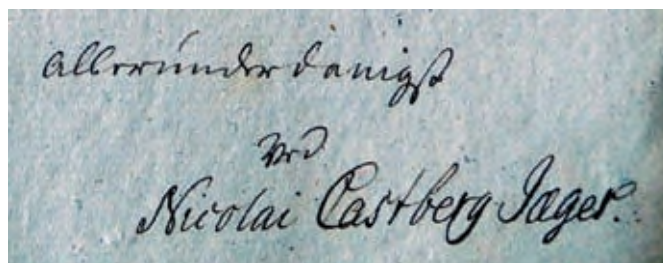 allerunderdanigst
ved
Nicolai Castberg Jæger.